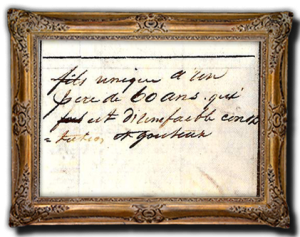 fils unique d'un
père de 60 ans. qui
est d'une faible const
= tution et gouteux